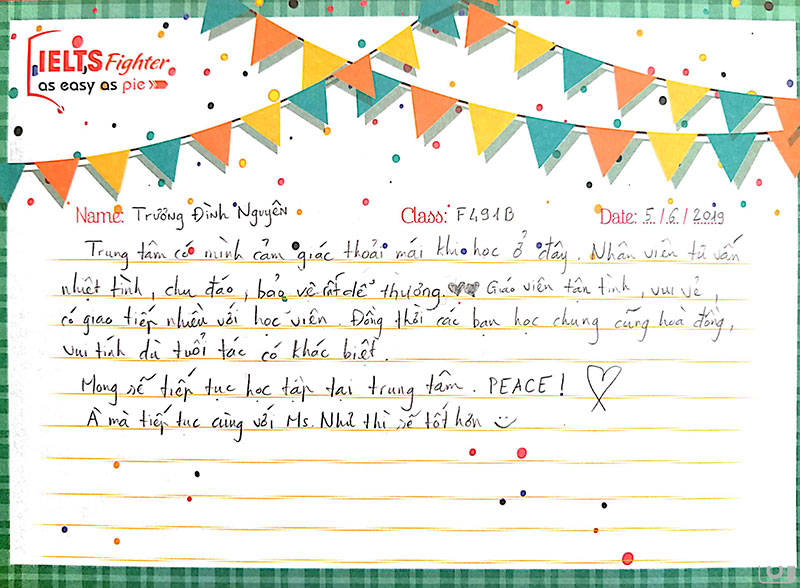 IELTS Fighter
as easy as pie
Name: Trương Đình Nguyên Class: F491B Date: 5/6/2019
Trung tâm có mình cảm giác thoải mái khi học ở đây. Nhân viên tư vấn
nhiệt tình, chu đáo, bảo vệ rất dễ thương. Giáo viên tận tình, vui vẻ,
có giao tiếp nhiều với học viên. Đồng thời các bạn học chung cũng hoà đồng,
vui tính dù tuổi tác có khác biệt.
Mong sẽ tiếp tục học tập tại trung tâm. PEACE!
À mà tiếp tục cùng với Ms. Như thì sẽ tốt hơn